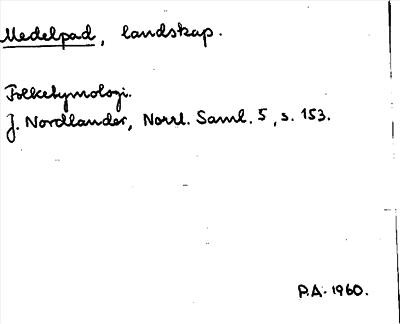 Medelpad, landskap.
Folketymologi.
J. Nordlander, Norrl. Saml. 5, s. 153.
P.A. 1960.